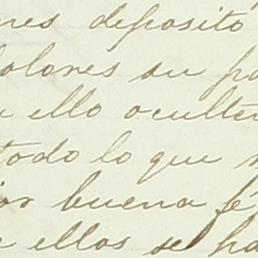 nes depositó
dolores su pa
a ello oculte
todo lo que
ios buena fé
e ellos se ha